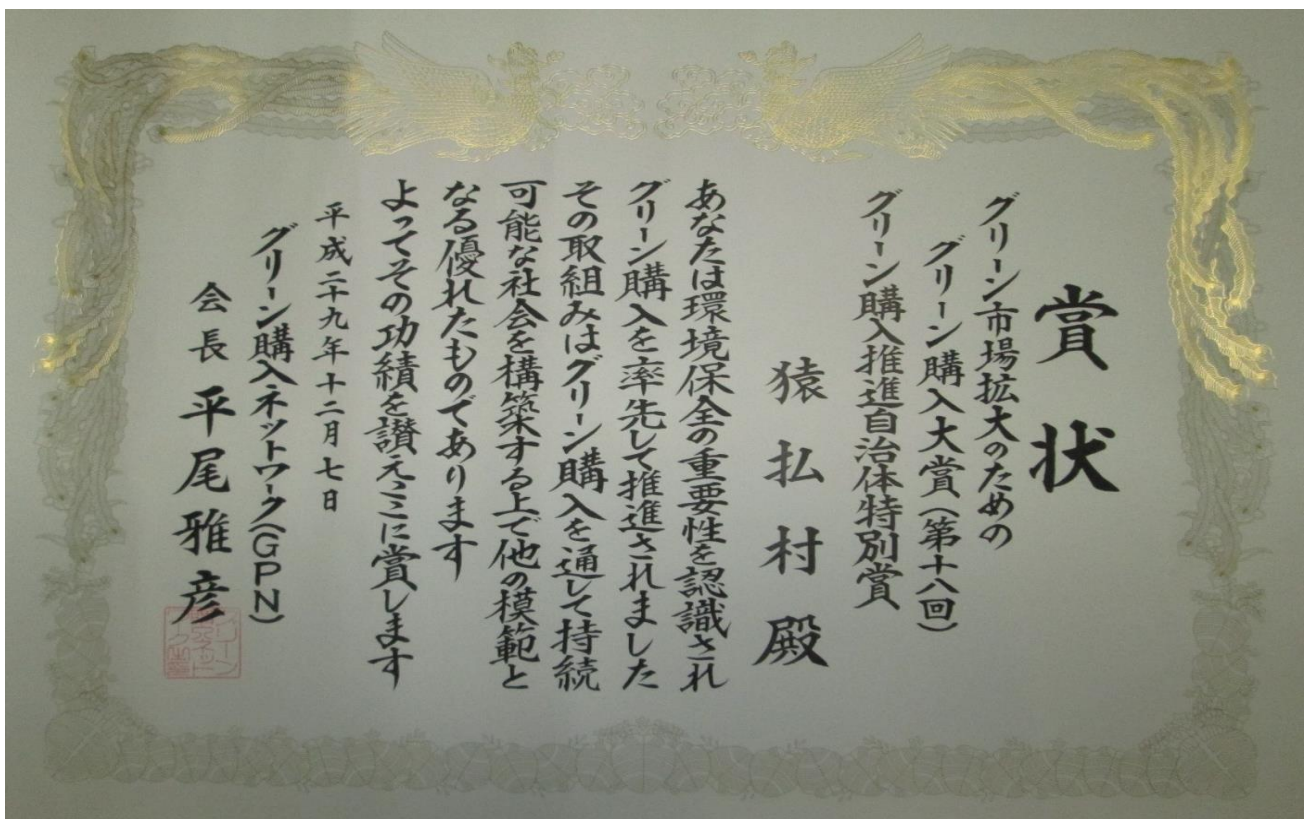 賞状
グリーン市場拡大のための
グリーン購入大賞(第十八回)
グリーン購入推進自治体特別賞
猿払村殿
あなたは環境保全の重要性を認識され
グリーン購入を率先して推進されました
その取組みはグリーン購入を通して持続
可能な社会を構築する上で他の模範と
なる優れたものであります
よってその功績を讃えここに賞します
平成二十九年十二月七日
グリーン購入ネットワーク(GPN)
会長 平尾雅彦